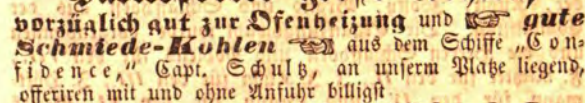 vorzüglich gut zur Ofenheizung und ☞ gute
Schmiede-Kohlen ☜ aus dem Schiffe „Con=
fidence,“ Capt. Schultz, an unserm Platze liegend,
offeriren mit und ohne Anfuhr billigst